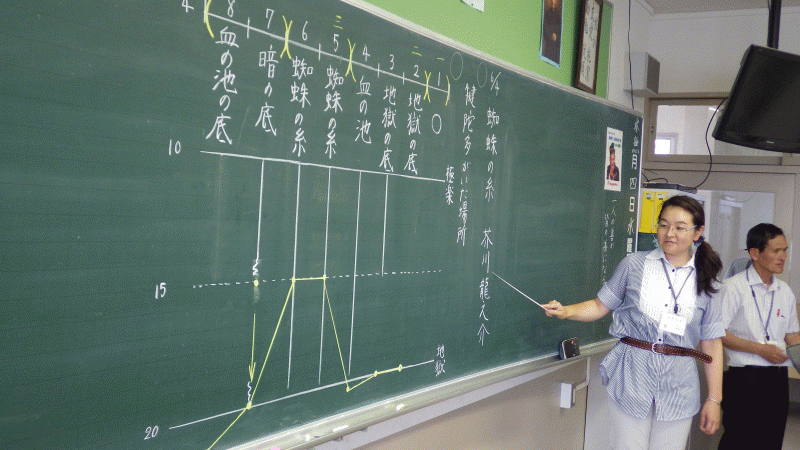 6/4 蜘蛛の糸 芥川龍之介
犍陀多がいた場所
極楽
一
1
二
2 地獄の底
3 地獄の底
4 血の池
三
5 蜘蛛の糸
6 蜘蛛の糸
7 暗の底
8 血の池の底
4
10
15
20
地獄
月四日水曜